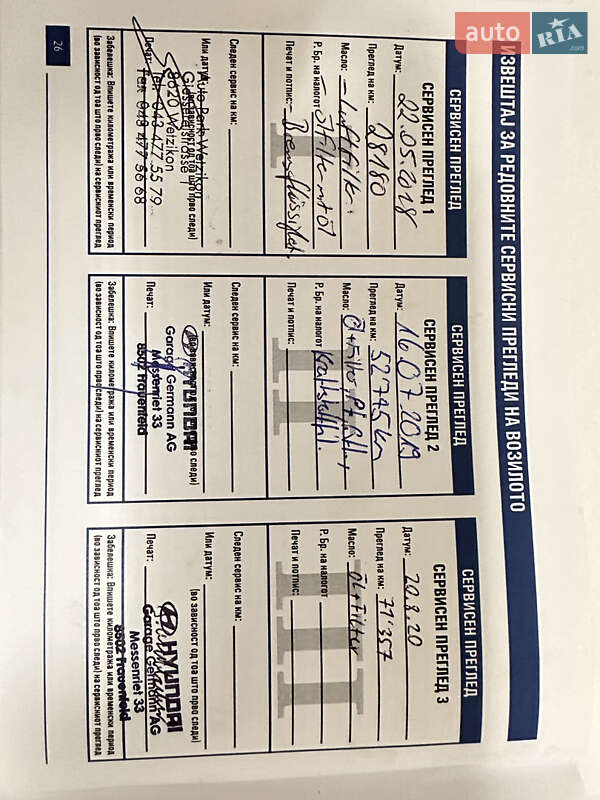 auto
RIA
.com
ИЗВЕШТАЈ ЗА РЕДОВНИТЕ СЕРВИСНИ ПРЕГЛЕДИ НА ВОЗИЛОТО
СЕРВИСЕН ПРЕГЛЕД
СЕРВИСЕН ПРЕГЛЕД 1
Датум: 22.05.2018
Преглед на км: 28180
Масло: - Luftfilter
Р. Бр. на налогот - Ölfilter mt Öl
Печат и потпис: - Bremsflüssigkeit
Следен сервис на км:
Или датум:
(во зависност од тоа што прво следи)
Auto Park Wetzikon
8620 Wetzikon
Печат:
Tel. 043 477 55 79
Fax 043 477 56 68
Забелешка: Впишете километража или временски период
(во зависност од тоа што прво следи) на сервисниот преглед
СЕРВИСЕН ПРЕГЛЕД
СЕРВИСЕН ПРЕГЛЕД 2
Датум: 16.07.2019
Преглед на км: 52745 km
Масло:
Р. Бр. на налогот
Печат и потпис:
II
Следен сервис на км:
Или датум:
(во зависност од тоа што прво следи)
HYUNDAI
Garage Germann AG
Messenriet 33
8502 Frauenfeld
Печат:
Забелешка: Впишете километража или временски период
(во зависност од тоа што прво следи) на сервисниот преглед
СЕРВИСЕН ПРЕГЛЕД
СЕРВИСЕН ПРЕГЛЕД 3
Датум: 20.8.20
Преглед на км: 71'357
Масло: ÖL + Filter
Р. Бр. на налогот
Печат и потпис:
III
Следен сервис на км:
Или датум:
(во зависност од тоа што прво следи)
HYUNDAI
Garage Germann AG
Messenriet 33
8502 Frauenfeld
Печат:
Забелешка: Впишете километража или временски период
(во зависност од тоа што прво следи) на сервисниот преглед
26